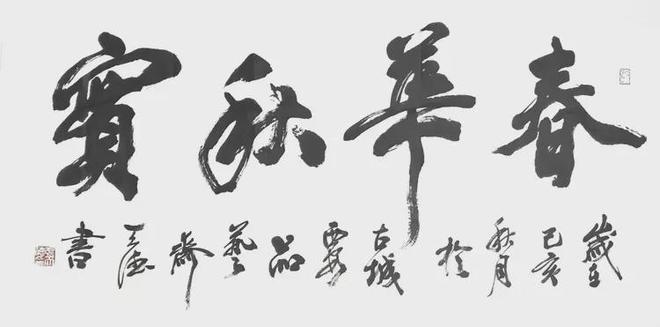 春華秋實
歲在己亥秋月於古城品藝齋書